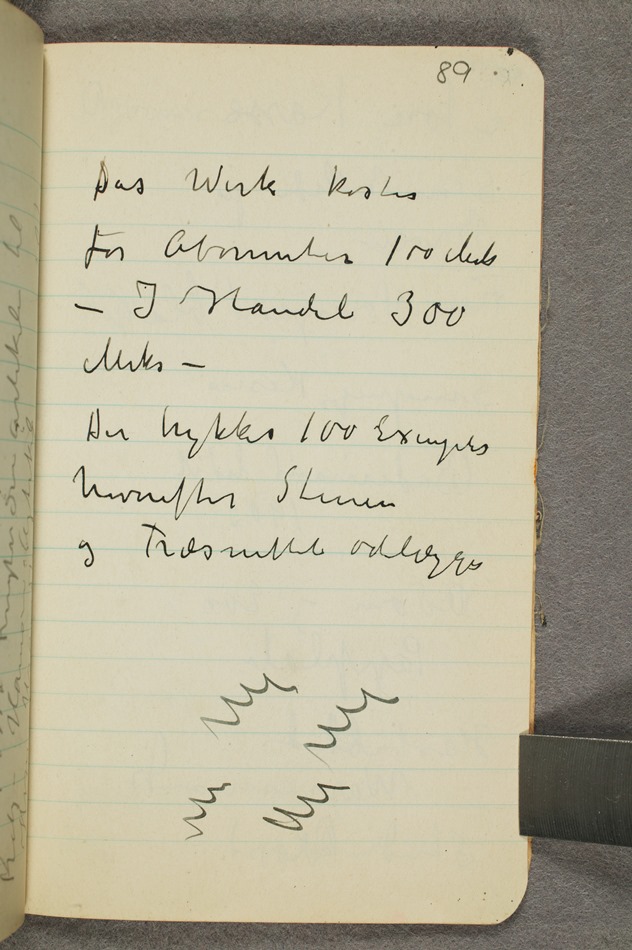 89
Das Werk koster
For Abonnenten 100 Mark
— I Handel 300
Marks —
Der trykkes 100 Exemplrs
hvorefter Stenen
og Træsnittet ødelægges